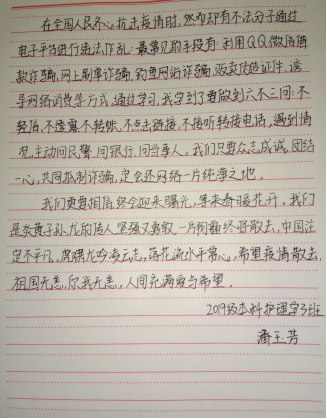 在全国人民齐心抗击疫情时,然而却有不法分子通过
电子平台进行违法作乱:最常见的手段有:利用QQ微信借
款诈骗,网上刷单诈骗,钓鱼网站诈骗,贩卖仿造证件、误
导网络消费等方式,通过学习,我学到了要做到六不三问:不
轻信,不透露,不转账,不点击链接,不接听转接电话,遇到情
况,主动问民警,问银行,问当事人。我们只要众志成诚,团结
一心,共同抵制诈骗,定会还网络一片纯净之地。
我们更要相信终会迎来曙光,等来春暖花开,我们
是炎黄子孙,龙的传人坚强又勇敢,一片阴霾终将散去,中国注
定不平凡,虎啸龙吟凌云志,落花流水平常心,希望疫情散去,
祖国无恙,你我无恙,人间充满爱与希望。
2019级本科护理学3班
潘玉芳